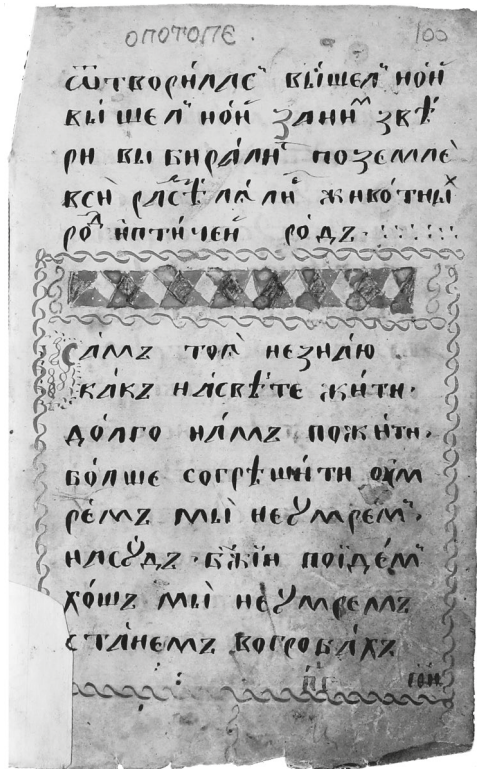 ОПОТОПЕ. 100
ѿтвори́ласъ вы́шелъ но́й
вы́шелъ но́й за ни́м звѣ́
ри выбира́ли поземлѐ
всѝ расѣ́лали живо́тны̆х
ро́д и пти́чей ро́дъ
са́мъ того̀ незна́ю.
ка́къ насвѣ́те жи́ти.
до́лго на́мъ пожи́ти.
бо́лше согрѣши́ти оум
ре́мъ мы̀ неꙋмре́мъ.
насꙋ́дъ. бж҃їи по̀иде́мъ
хо́шъ мы̀ неꙋмремъ
ста́немъ вогроба́хъ